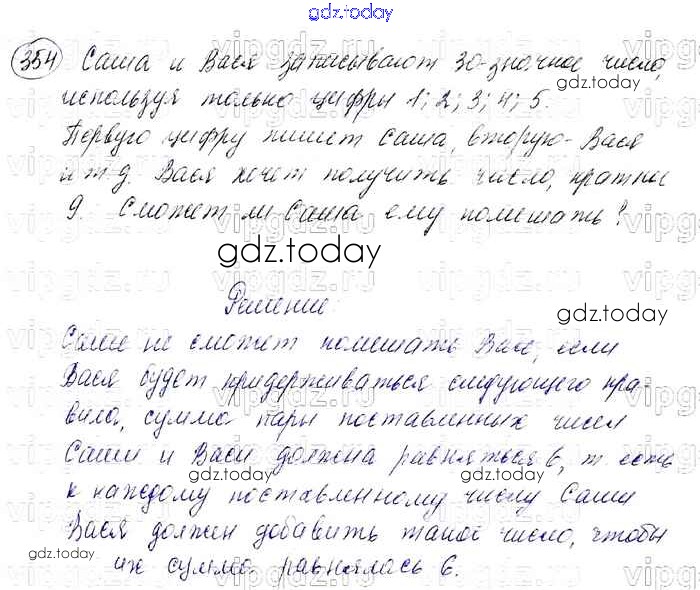 gdz.today
354 Саша и Вася записывают 30-значное число,
используя только цифры 1; 2; 3; 4; 5.
gdz.today
Первую цифру пишет Саша, вторую - Вася
и т д. Вася хочет получить число, кратны
9. Сможет ли Саша ему помешать?
gdz.today
Решение:
gdz.today
Саша не сможет помешать Васе, если
Вася будет придерживаться следующего пра-
вила, сумма пары поставленных чисел
Саши и Васи должна равняться 6, т есть
gdz.today
к каждому поставленному числу Саши
Вася должен добавить такое число, чтобы
gdz.today
их сумма равнялась 6.
gdz.today